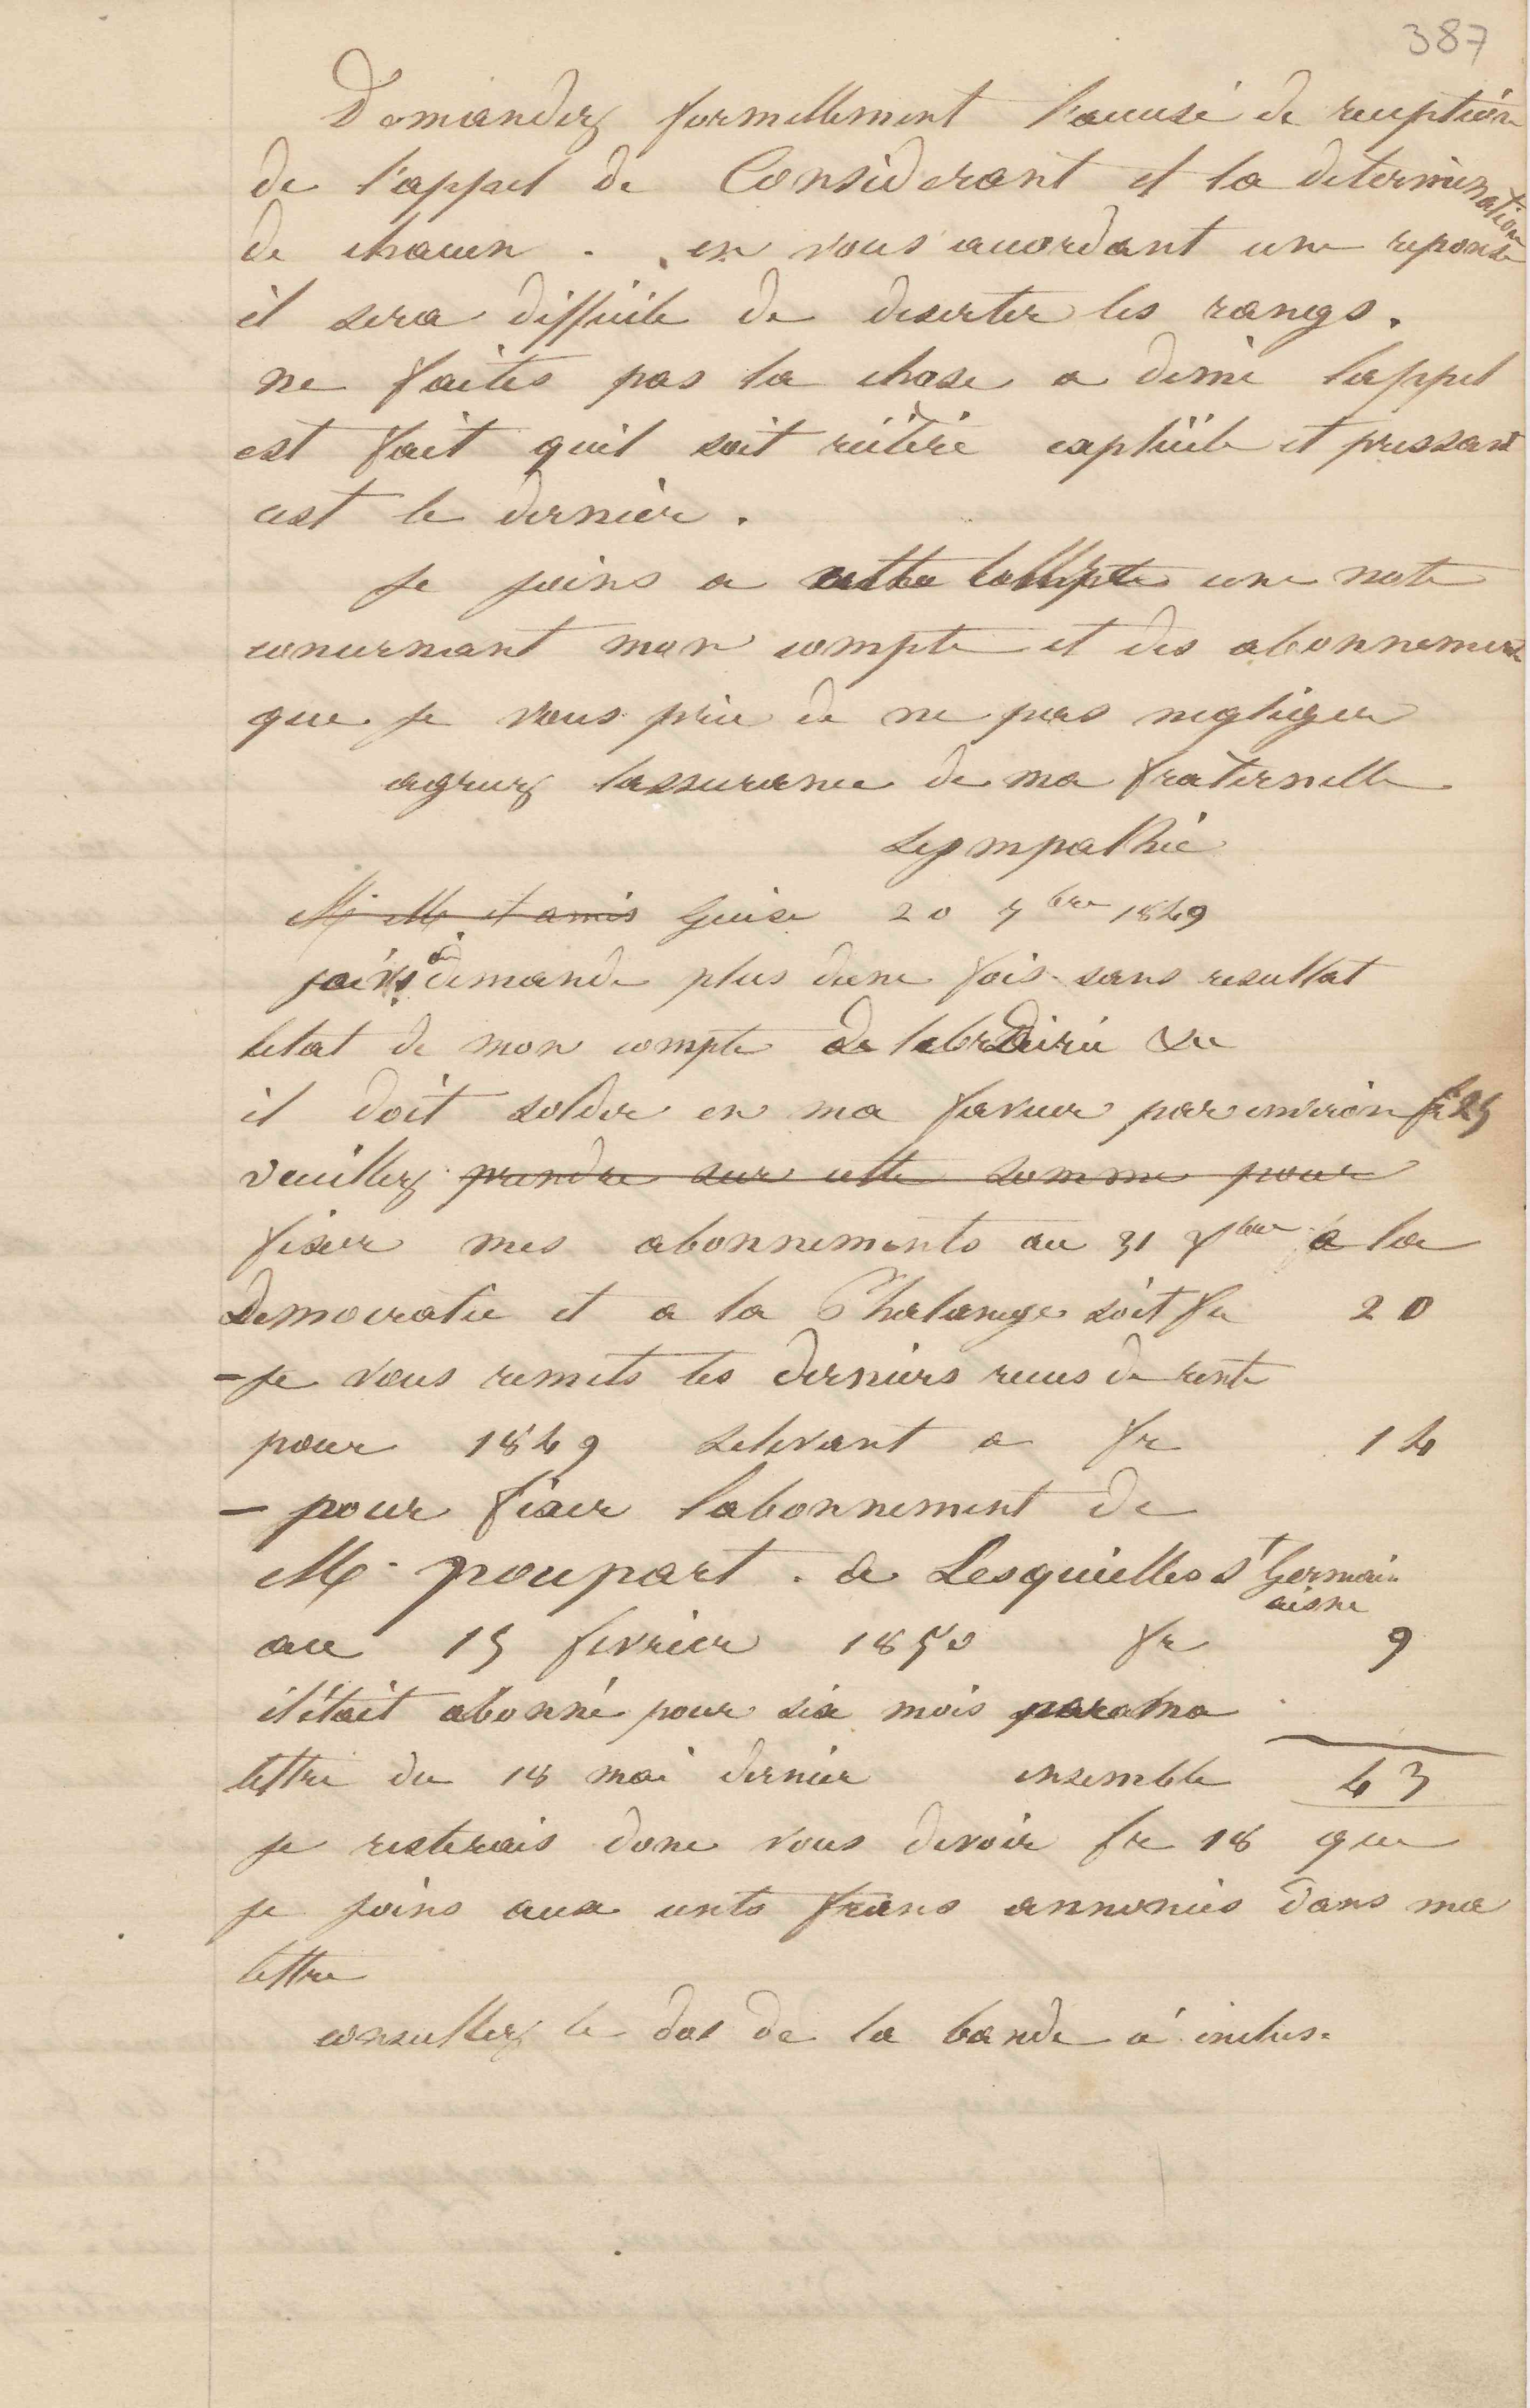 387
Demandez formellement l'accusé de reception
de l'appel de Considerant et la determination
de chacun . en vous accordant une reponse
il sera difficile de deserter les rangs.
ne faites pas la chose a demi lappel
est fait quil soit réitéré explicite et pressant
cest le dernier.
Je joins a cette lettre une note
concernant mon compte et des abonnements
que je vous prie de ne pas negliger
agreez lassurance de ma fraternelle
sympathie
M. M. et amis Guise 20 7bre 1849
jai demandé plus dune fois sans resultat
letat de mon compte de librairie
il doit solder en ma faveur par environ fr 25
veuillez prendre sur cette somme pour
fixer mes abonnements au 31 xbre a la
Democratie et a la Phalange soit fr 20
- je vous remets les derniers recus de rente
pour 1849 selevant a fr 14
- pour fixer labonnement de
M. poupart . a Lesquielles St Germain
aisne
au 15 fevrier 1850 fr 9
il était abonné pour six mois par ma
lettre du 18 mai dernier ensemble 43
je resterais donc vous devoir fr 18 que
je joins aux cents francs annoncés dans ma
lettre
consultez le dos de la bande ci incluse